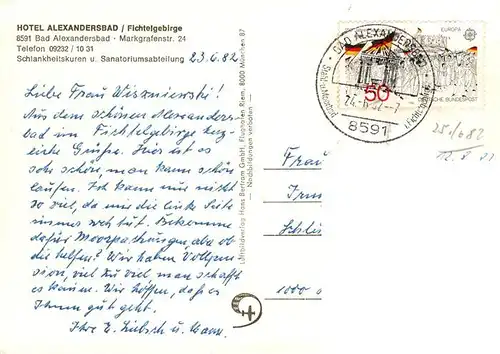 HOTEL ALEXANDERSBAD / Fichtelgebirge
8591 Bad Alexandersbad - Markgrafenstr. 24
Telefon 09232 / 10 31
Schlankheitskuren u. Sanatoriumsabteilung
23.6.82
Liebe Frau Wiszniewski!
Aus dem schönen Alexanders-
bad im Fichtelgebirge herz-
liche Grüße. Hier ist es
sehr schön, man kann schön
laufen. Ich kann nur nicht
so viel, da mir die linke Seite
immer weh tut. Bekomme
dafür Moorpackungen, aber ob
die helfen? Wir haben Vollpen-
sion, viel zu viel man schafft
es kaum. Wir hoffen, daß es
Ihnen gut geht.
Ihre E. Liebsch u. Mann.
Luftbildverlag Hans Bertram GmbH, Flughafen Riem, 8000 München 87
Nachbildungen verboten
BAD ALEXANDERSBAD
24.-6.82-7
8591
EUROPA
50
SCHE BUNDESPOST
Frau
1000